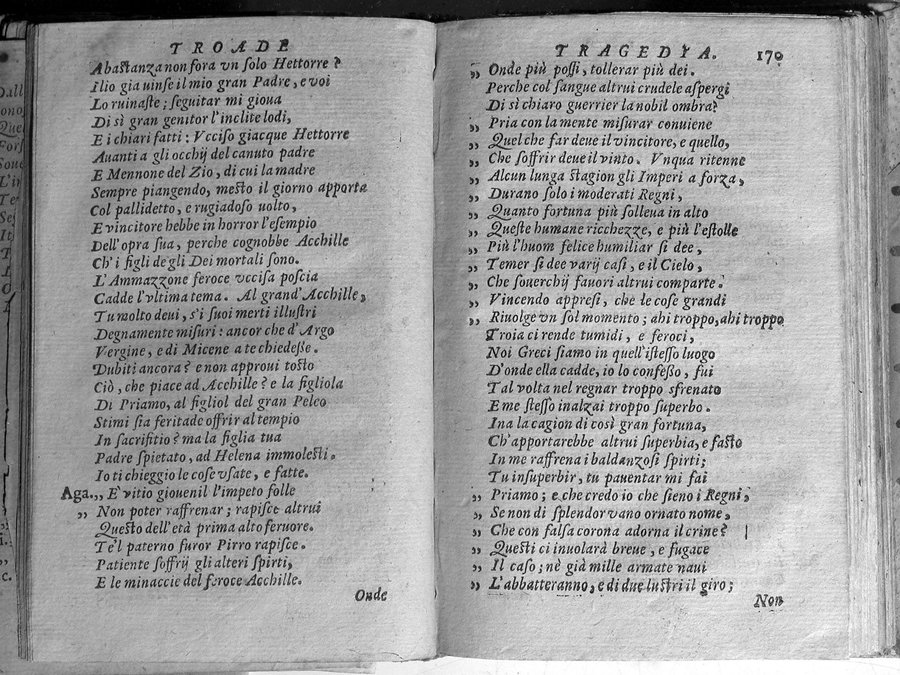 TROADE
Abastanza non fora vn ſolo Hettorre?
Ilio gia uinſe il mio gran Padre, e voi
Lo ruinaſte; ſeguitar mi gioua
Di sì gran genitor l'inclite lodi,
E i chiari fatti: Vcciſo giacque Hettorre
Auanti a gli occhij del canuto padre
E Mennone del Zio, di cui la madre
Sempre piangendo, meſto il giorno apporta
Col pallidetto, e rugiadoſo uolto,
E vincitore hebbe in horror l'eſempio
Dell'opra ſua, perche cognobbe Acchille
Ch'i figli de gli Dei mortali ſono.
L'Ammazzone feroce vcciſa poſcia
Cadde l'vltima tema. Al grand'Acchille,
Tu molto deui, s'i ſuoi merti illuſtri
Degnamente miſuri: ancor che d'Argo
Vergine, e di Micene a te chiedeſſe.
Dubiti ancora? e non approui toſto
Ciò, che piace ad Acchille? e la figliola
Di Priamo, al figliol del gran Peleo
Stimi ſia feritade offrir al tempio
In ſacrifitio? ma la figlia tua
Padre ſpietato, ad Helena immoleſti.
Io ti chieggio le coſe vſate, e fatte.
Aga.,, E' vitio giouenil l'impeto folle
,, Non poter raffrenar; rapiſce altrui
Queſto dell'età prima alto feruore.
Te'l paterno furor Pirro rapiſce.
Patiente ſoffrij gli alteri ſpirti,
E le minaccie del feroce Acchille.
Onde
TRAGEDYA. 170
,, Onde più poſſi, tollerar più dei.
Perche col ſangue altrui crudele aſpergi
Di sì chiaro guerrier la nobil ombra?
,, Pria con la mente miſurar conuiene
,, Quel che far deue il vincitore, e quello,
,, Che ſoffrir deue il vinto. Vnqua ritenne
,, Alcun lunga ſtagion gli Imperi a forza,
,, Durano ſolo i moderati Regni,
,, Quanto fortuna più ſolleua in alto
,, Queſte humane ricchezze, e più l'eſtolle
,, Più l'huom felice humiliar ſi dee,
,, Temer ſi dee varij caſi, e il Cielo,
,, Che ſouerchij fauori altrui comparte.
,, Vincendo appreſi, che le coſe grandi
,, Riuolge vn ſol momento; ahi troppo, ahi troppo
Troia ci rende tumidi, e feroci,
Noi Greci ſiamo in quell'iſteſſo luogo
D'onde ella cadde, io lo confeſſo, fui
Tal volta nel regnar troppo sfrenato
E me ſteſſo inalzai troppo ſuperbo.
Ina la cagion di così gran fortuna,
Ch'apportarebbe altrui ſuperbia, e faſto
In me raffrena i baldanzoſi ſpirti;
Tu inſuperbir, tu pauentar mi fai
,, Priamo; e che credo io che ſieno i Regni,
,, Se non di ſplendor vano ornato nome,
,, Che con falſa corona adorna il crine?
,, Queſti ci inuolarà breue, e fugace
,, Il caſo; nè già mille armate naui
,, L'abbatteranno, e di due luſtri il giro;
Non